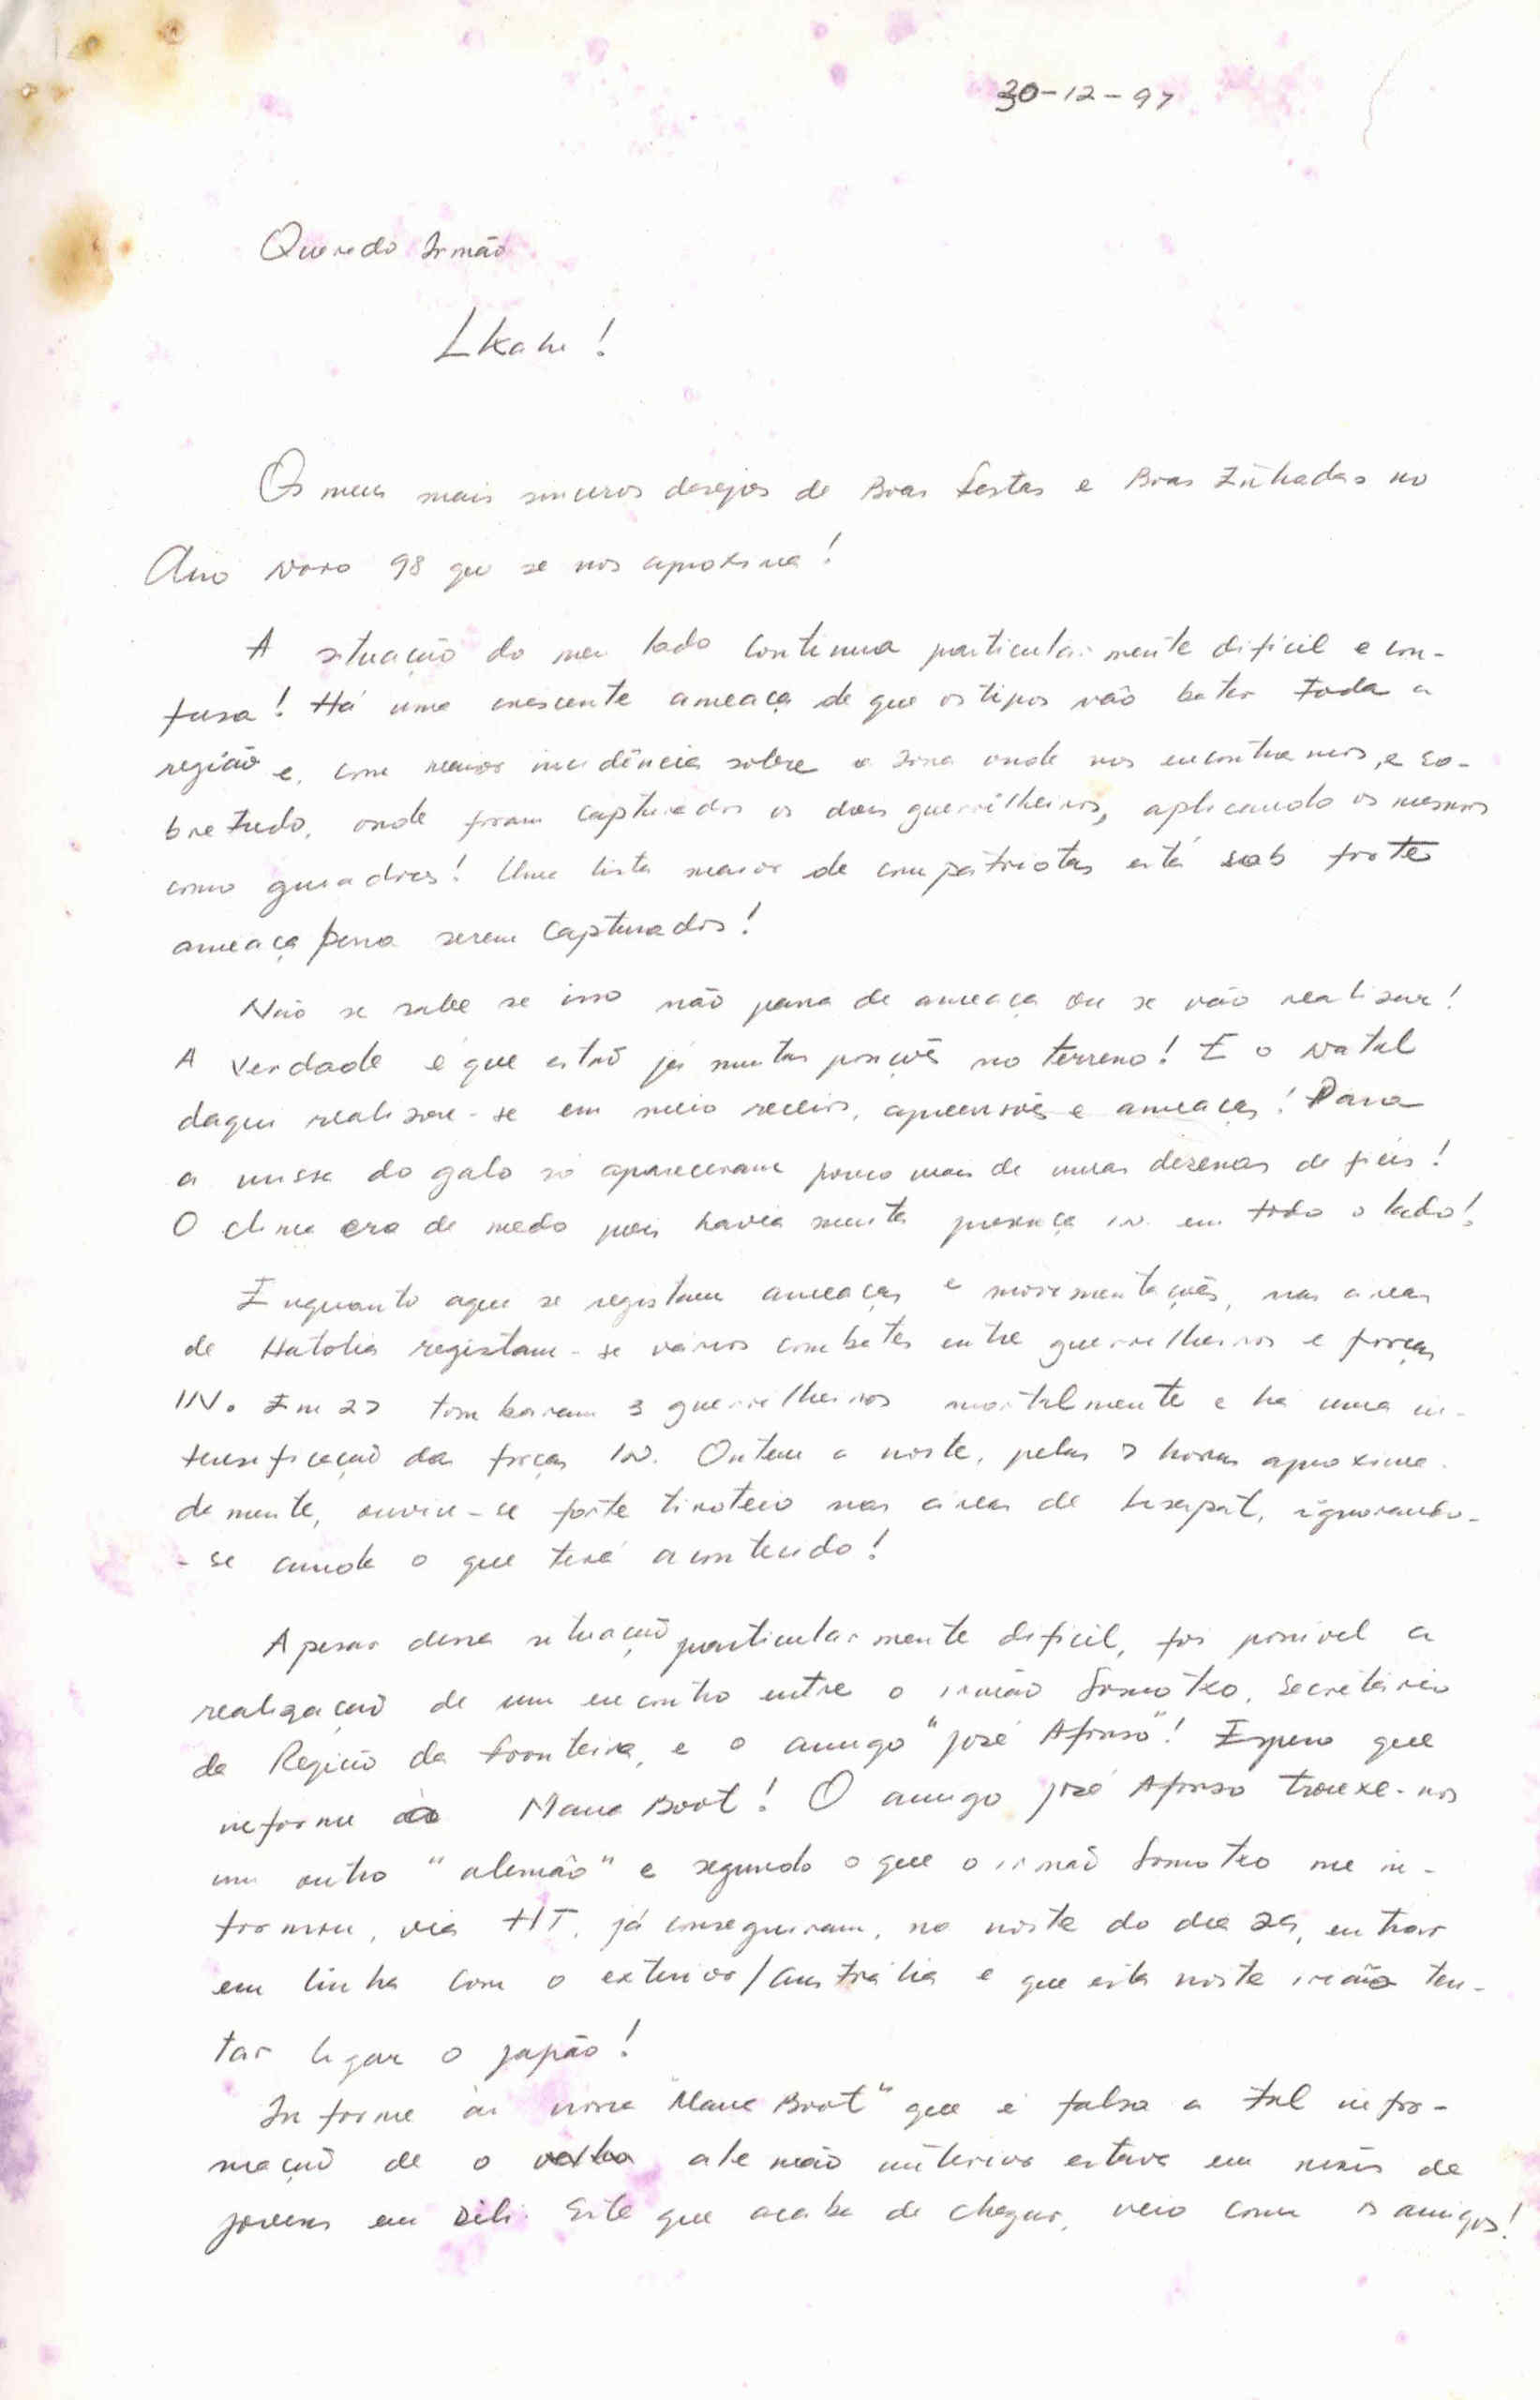 30-12-97
Querido Irmão
Lkahe!
Os meus mais sinceros desejos de Boas Festas e Boas Entradas no
Ano Novo 98 que se nos aproxima!
A situação do meu lado continua particularmente difícil e con-
fusa! Há uma crescente ameaça de que os tipos vão bater toda a
região e, com maior incidência sobre a zona onde nos encontramos, e so-
bretudo, onde foram capturados os dois guerrilheiros, aplicando os mesmos
como guiadores! Uma lista maior de compatriotas está sob forte
ameaça para serem capturados!
Não se sabe se isso não passa de ameaça ou se vão realizar!
A verdade é que estão já muitas posições no terreno! E o Natal
daqui realizou-se em meio receios, apreensões e ameaças! Para
a missa do galo só apareceram pouco mais de umas dezenas de fiéis!
O clima era de medo pois havia muita presença IN em todo o lado!
Enquanto aqui se registam ameaças e movimentações, nas áreas
de Hatolia registam-se vários combates entre guerrilheiros e forças
IN. Em 27 tombaram 3 guerrilheiros mortalmente e há uma in-
tensificação das forças IN. Ontem a noite, pelas 7 horas aproxima-
damente, ouviu-se forte tiroteio nas áreas de Lesepat, ignorando-
-se ainda o que terá acontecido!
Apesar dessa situação particularmente difícil, foi possível a
realização de um encontro entre o irmão Somotxo, Secretário
da Região da Fronteira, e o amigo "José Afonso"! Espero que
informe à Mana Boot! O amigo José Afonso trouxe-nos
um outro "alemão" e segundo o que o irmão Somotxo me in-
formou, via HT, já conseguiram, na noite do dia 29, entrar
em linha com o exterior/Austrália e que esta noite irão ten-
tar ligar o Japão!
Informe à nossa "Mana Boot" que é falsa a tal infor-
mação de o alemão anterior estava em mãos de
jovens em Dili. Este que acaba de chegar, veio com os amigos!